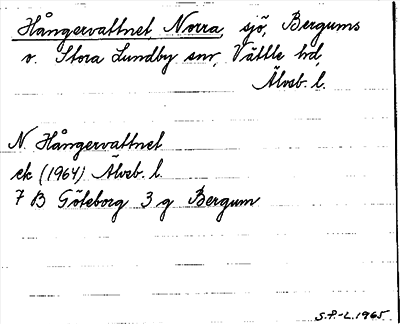 Hångervattnet, Norra, sjö, Bergums
o. Stora Lundby snr, Vättle hd,
Älvsb. l.
N. Hångervattnet
ek (1964) Älvsb. l.
7 B Göteborg 3 g Bergum
S.P.-L. 1965